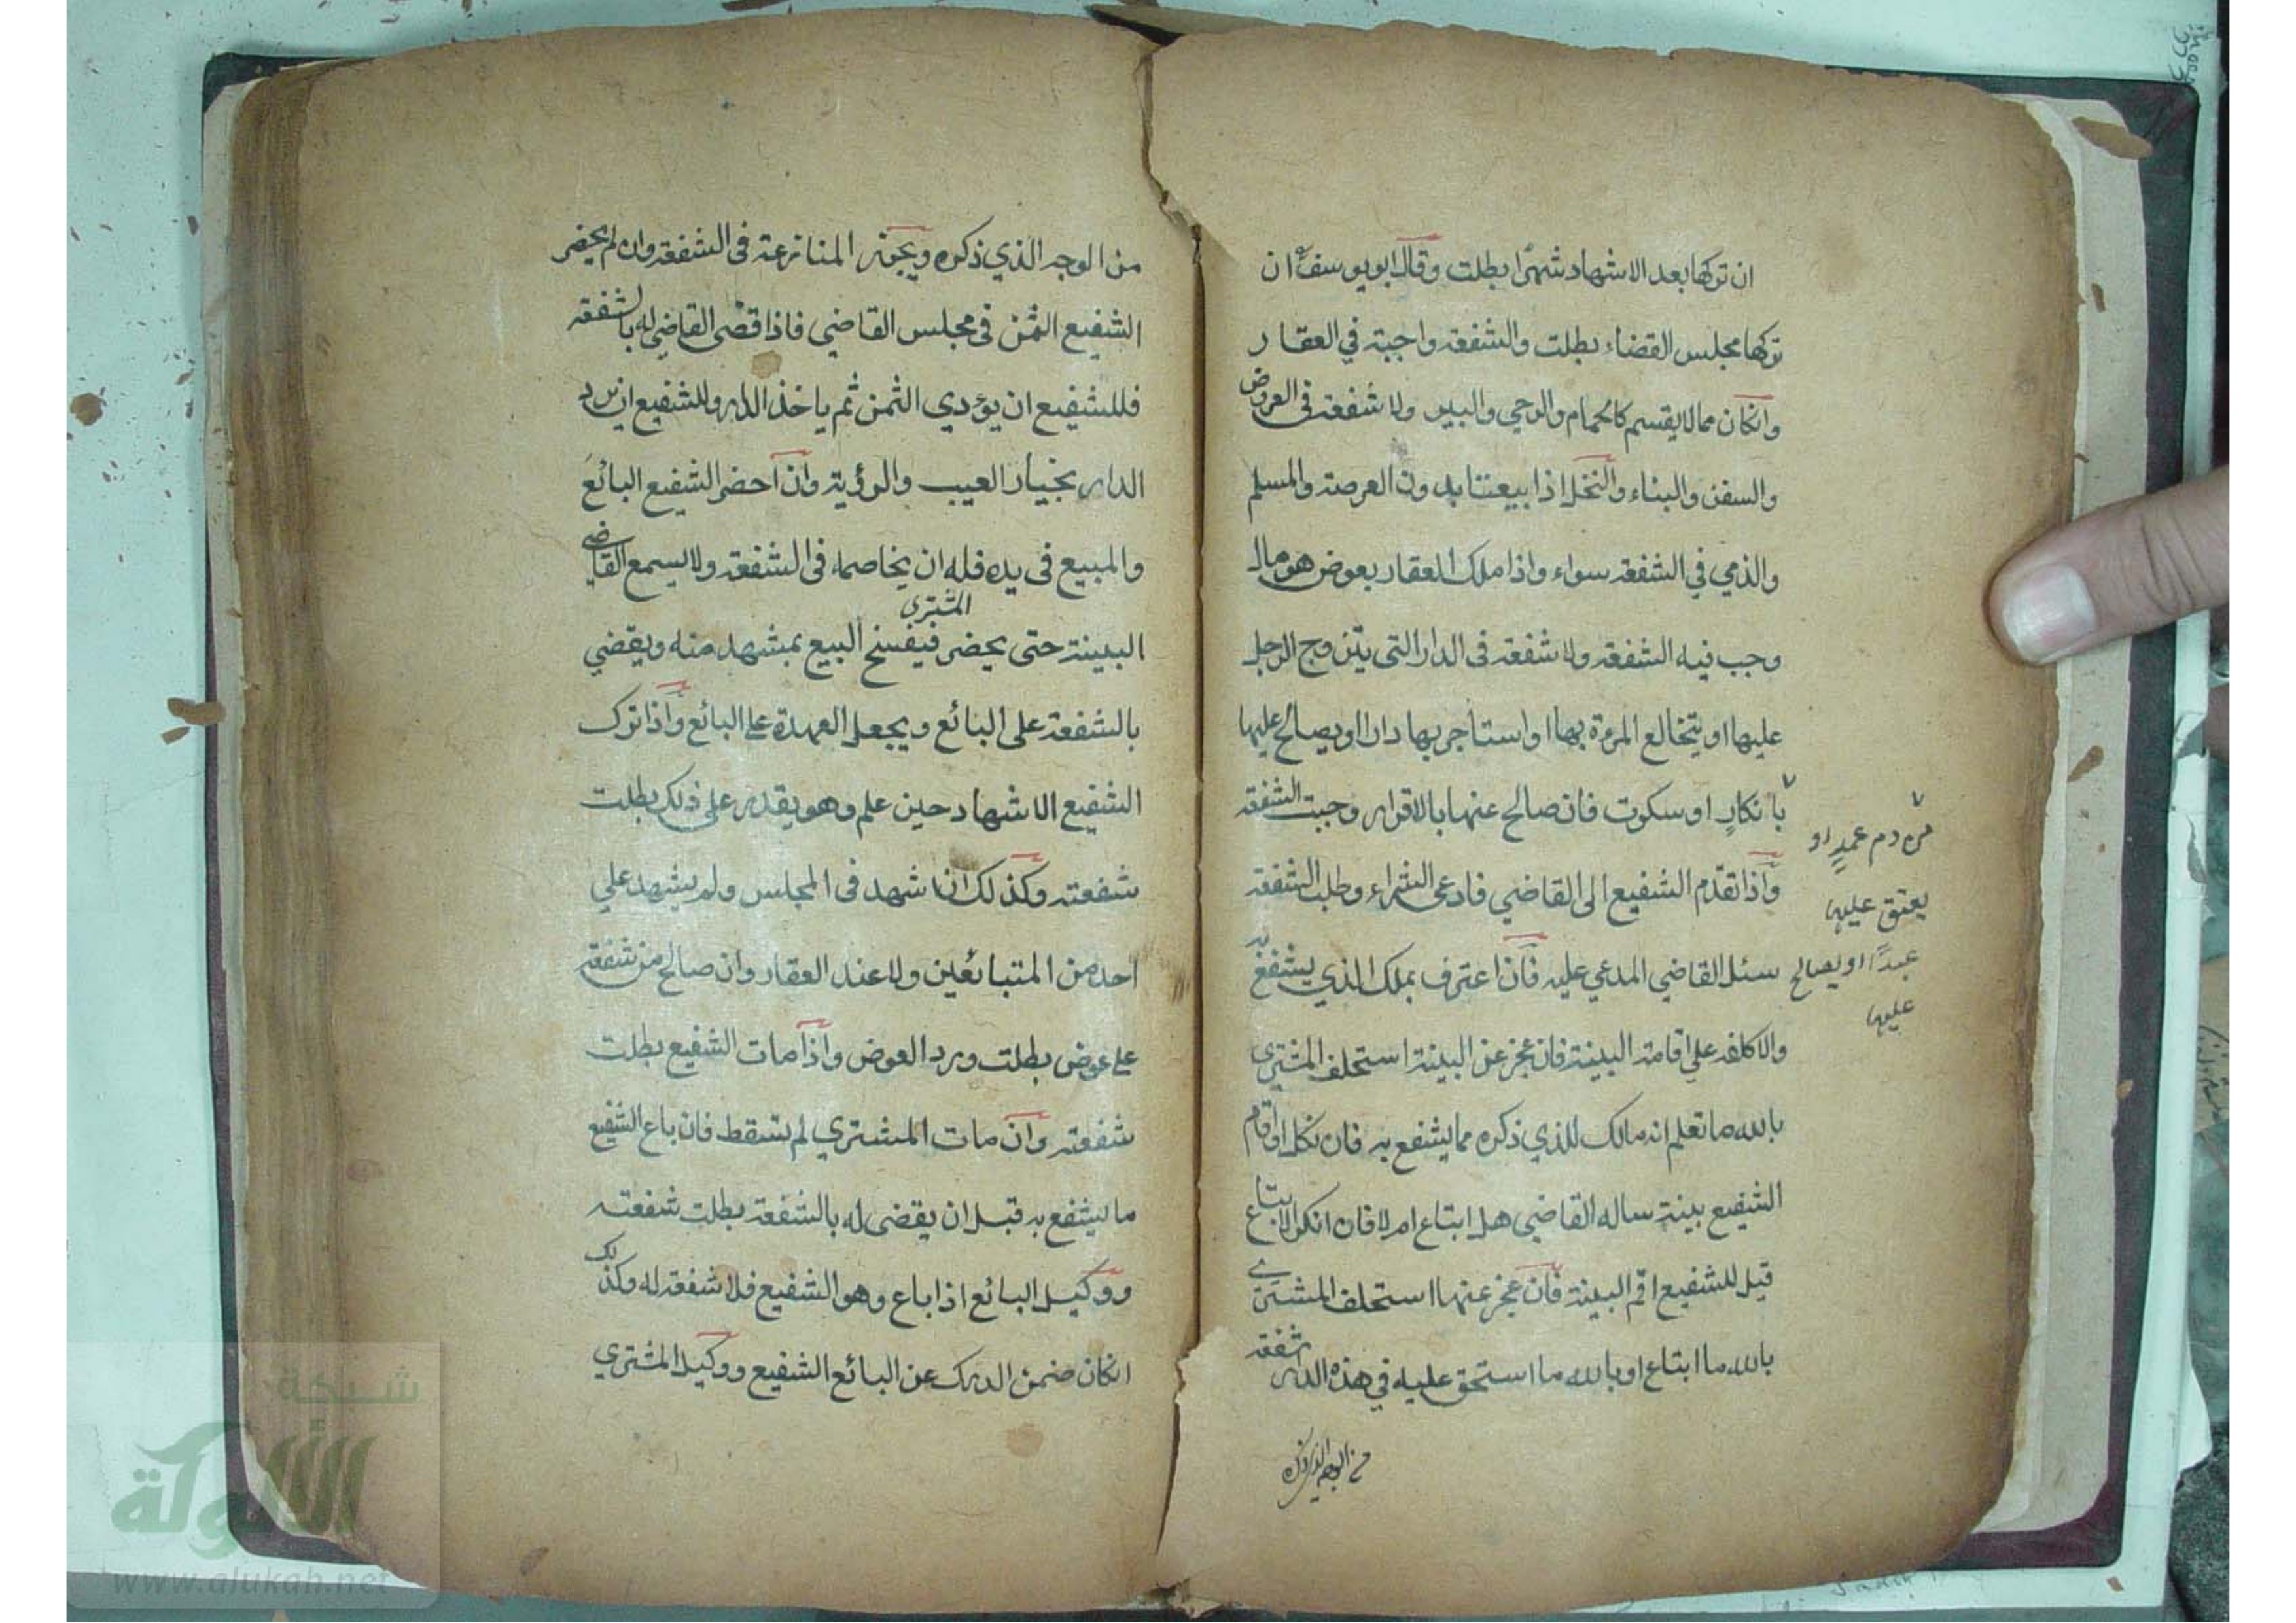 ان تركها بعد الاشهاد شهرًا بطلت وقال ابو يوسف ان
تركها مجلس القضاء بطلت والشفعة واجبة في العقار
وانكان مما لا يقسم كالحمام والرحي والبير ولا شفعة فى العروض
والسفن والبناء والنخل اذا بيعتا بدون العرصة والمسلم
والذمي في الشفعة سواء واذا ملك العقار بعوض هو مال
وجب فيه الشفعة ولا شفعة فى الدار التى يتزوج الرجل
عليها او يتخالع المرءة بها او استاجر بها دارا او يصالح عليها
بانكارٍ او سكوت فان صالح عنها بالاقرار وجبت الشفعة
واذا تقدّم الشفيع الى القاضي فادعى الشراء وطلب الشفعة
سئل القاضي المدعي عليه فان اعترف بملك الذي يشفع به
والا كلفه علي اقامة البينة فان عجز عن البينة استحلف المشتري
بالله ما تعلم انه مالك للذي ذكره مما يشفع به فان نكل او قام
الشفيع بينة ساله القاضي هل ابتاع ام لا فان انكر الابتياع
قيل للشفيع اقم البينة فان عجز عنها استحلف المشتري
بالله ما ابتاع او بالله ما استحق عليه في هذه الدار شفعة
من الوجه الذي ذكره
دم عمدٍ او
يعتق عليها
عبدًا او يصالح
عليها
من الوجه الذي ذكره ويجوز المنازعة فى الشفعة وان لم يحضر
الشفيع الثمن فى مجلس القاضي فاذا قضى القاضي له بالشفعة
فللشفيع ان يؤدي الثمن ثم ياخذ الدار وللشفيع ان يرد
الدار بخيار العيب والرؤية وان احضر الشفيع البائع
والمبيع فى يده فله ان يخاصمه فى الشفعة ولا يسمع القاضي
البينة حتى يحضر المشتري فيفسخ البيع بمشهد منه ويقضي
بالشفعة على البائع ويجعل العهدة على البائع واذا ترك
الشفيع الاشهاد حين علم وهو يقدر على ذلك بطلت
شفعته وكذلك ان اشهد فى المجلس ولم يشهد علي
احد من المتبائعين ولا عند العقار وان صالح من شفعة
على عوض بطلت ورد العوض واذا مات الشفيع بطلت
شفعته وان مات المشتري لم تسقط فان باع الشفيع
ما يشفع به قبل ان يقضى له بالشفعة بطلت شفعته
ووكيل البائع اذا باع وهو الشفيع فلا شفعة له وكذلك
انكان ضمن الدرك عن البائع الشفيع ووكيل المشتري
شبكة
الألوكة
www.alukah.net